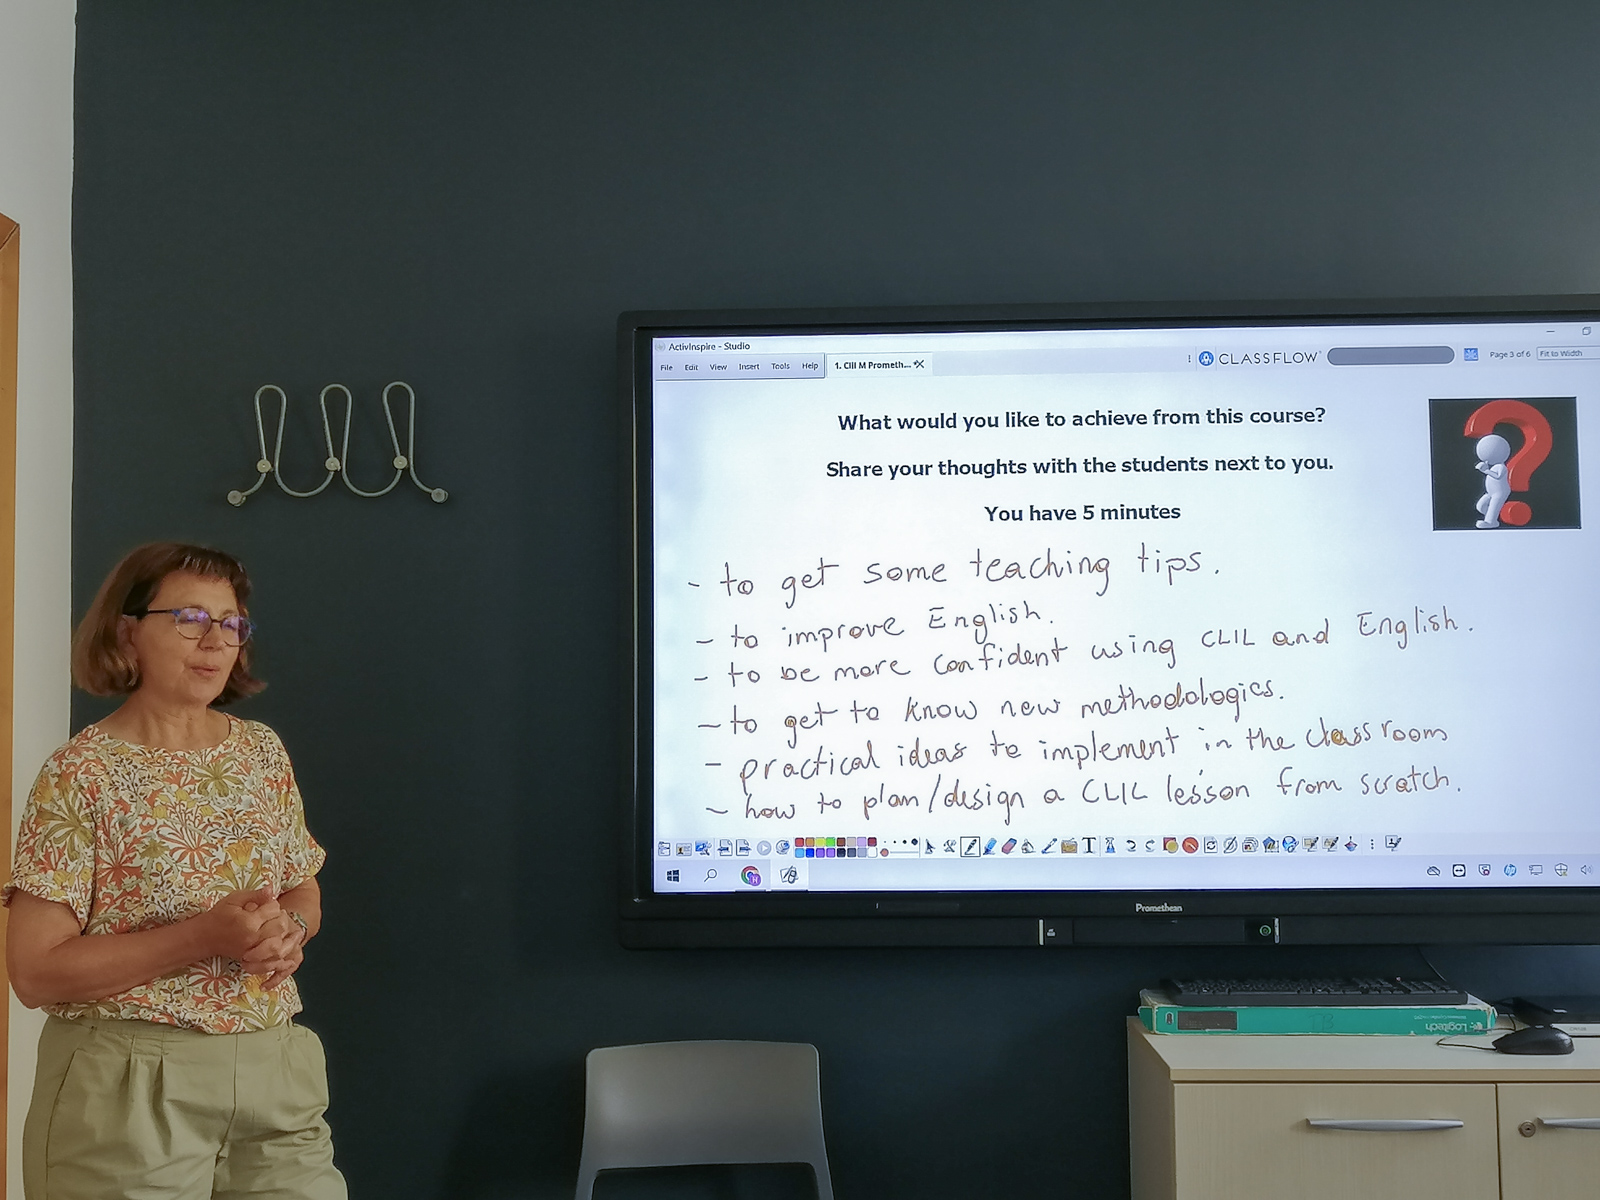 ActivInspire - Studio
File Edit View Insert Tools Help
1. Clil M Prometh...
CLASSFLOW
Page 3 of 6
Fit to Width
What would you like to achieve from this course?
Share your thoughts with the students next to you.
You have 5 minutes
- to get some teaching tips.
- to improve English.
- to be more confident using CLIL and English.
- to get to know new methodologies.
- practical ideas to implement in the classroom
- how to plan/design a CLIL lesson from scratch.
Promethean
Logitech